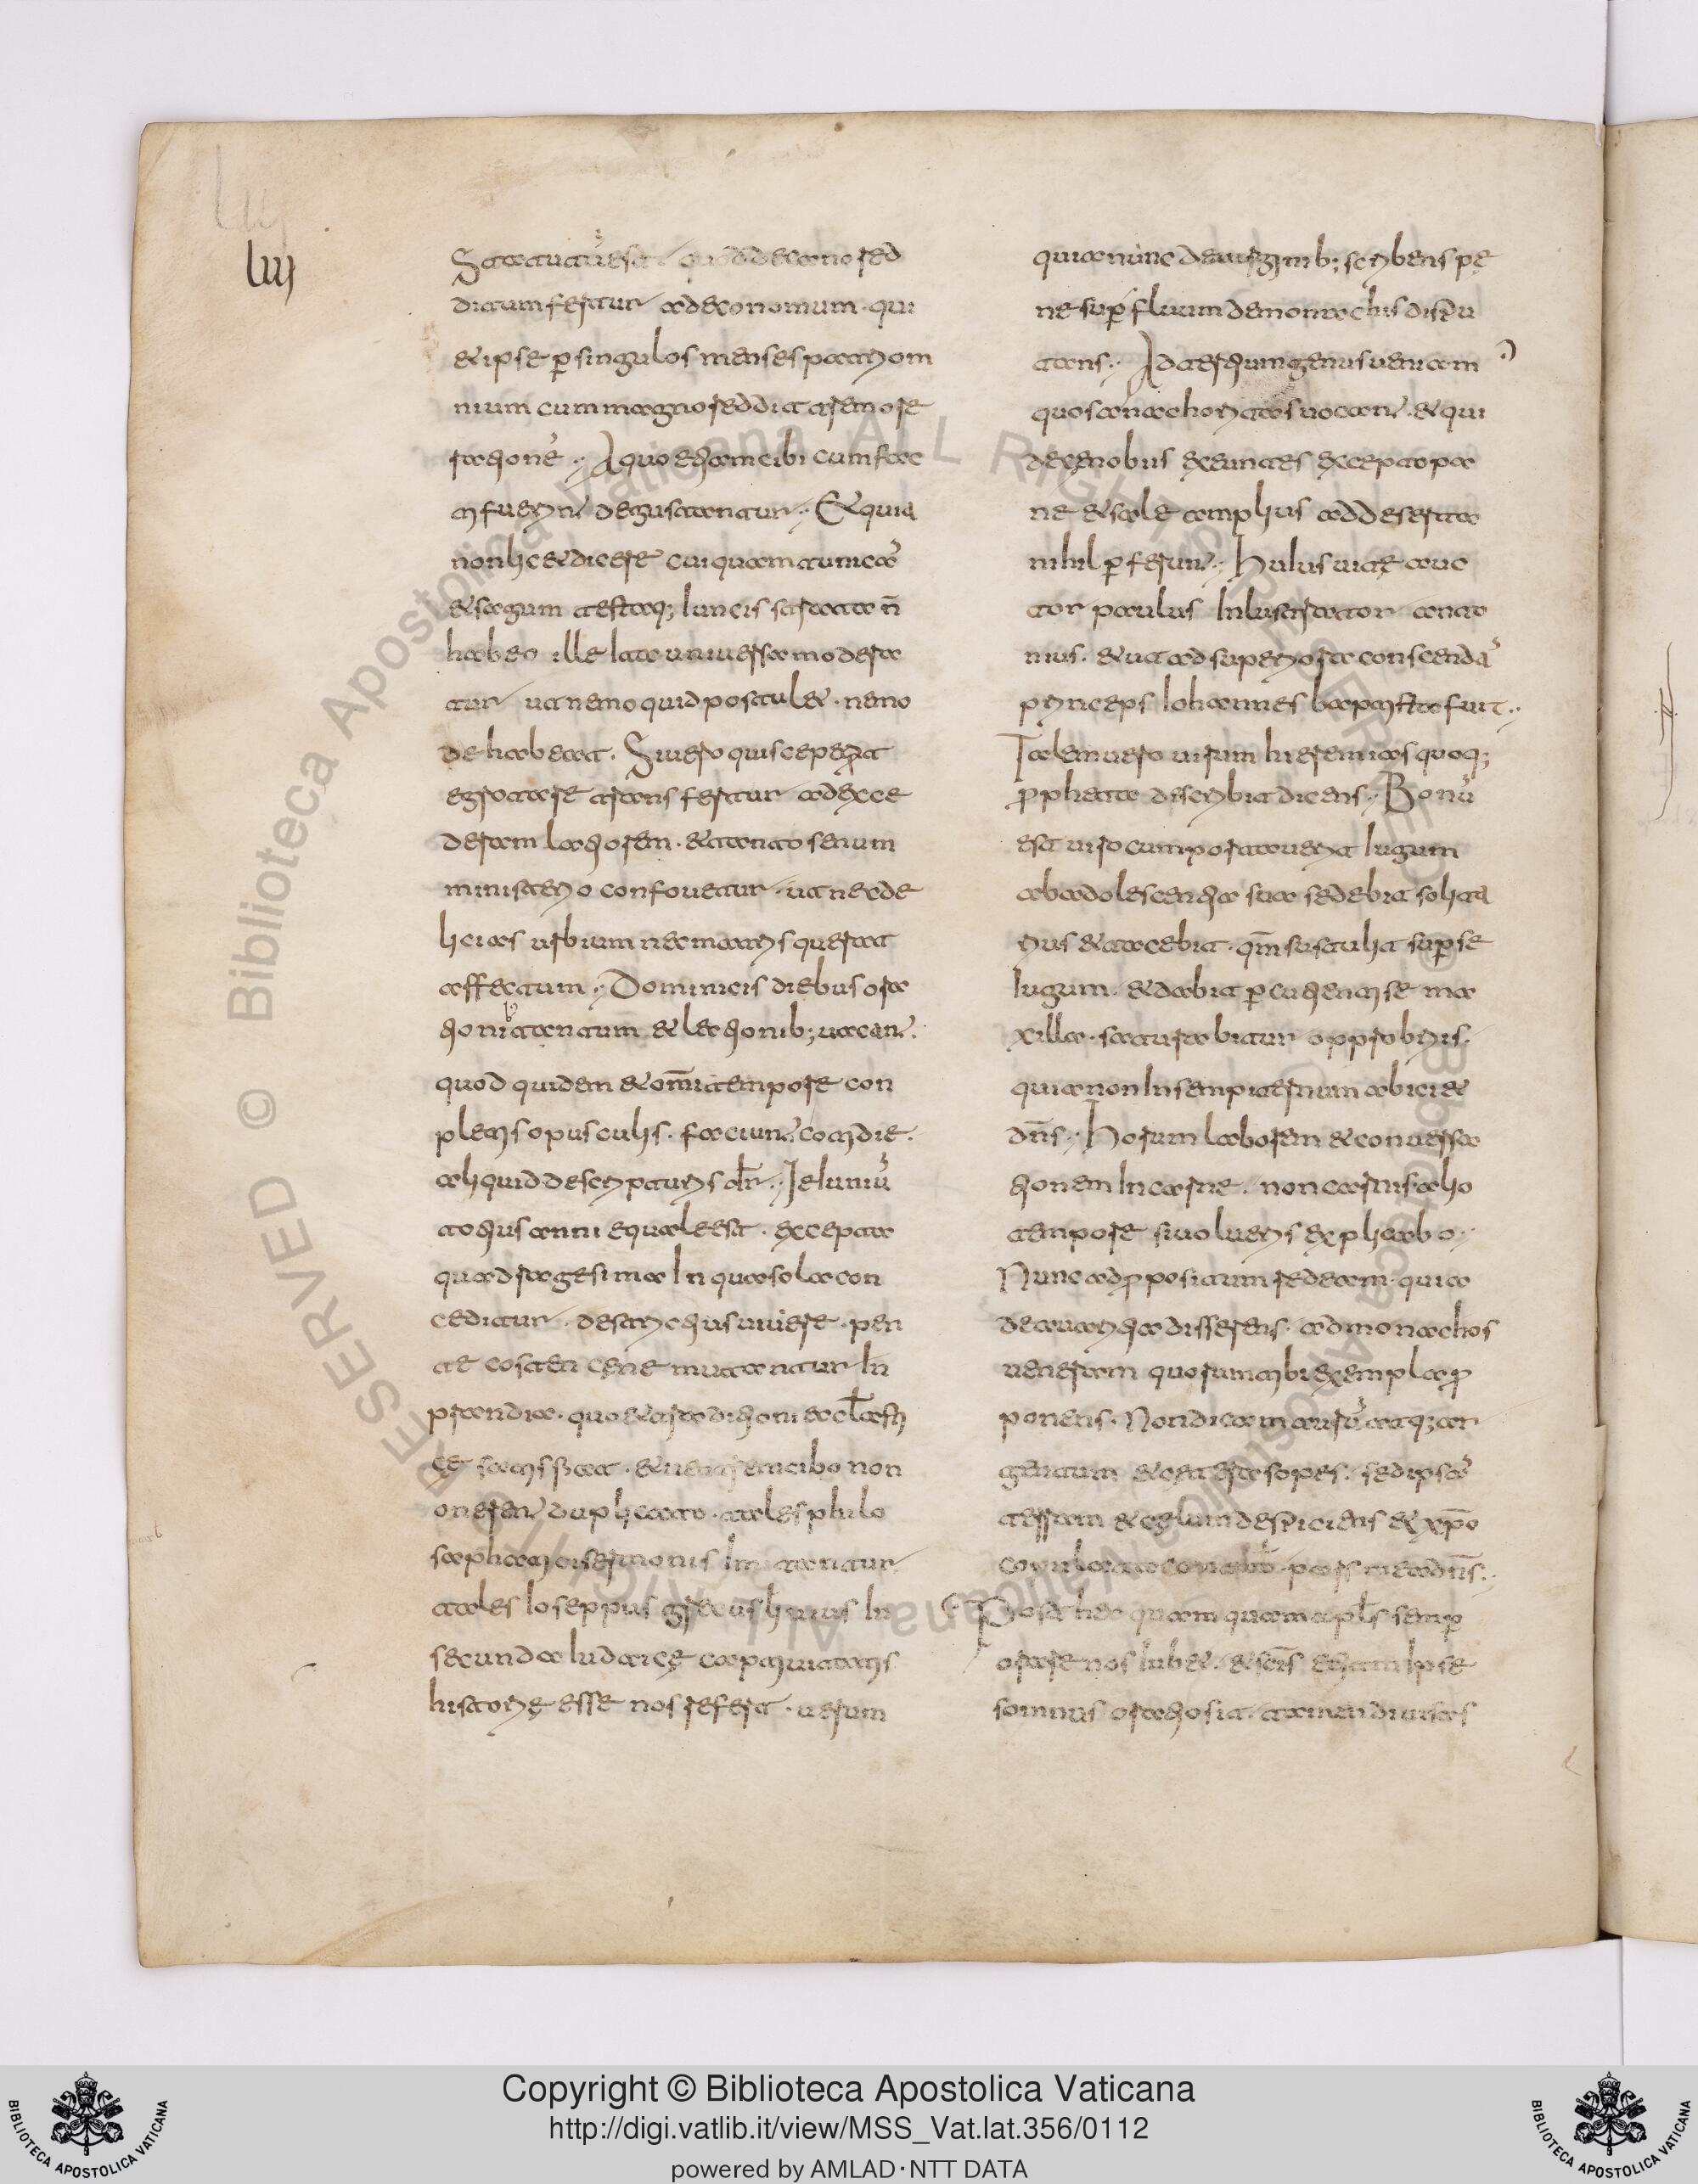 luj
luj
Statutũ est quod decano red
ditum fertur ad economum · qui
& ipse p̲ singulos menses patri om
nium cum magno reddit tremore
rationẽ ·, A quo etiam cibi cum fac
ti fuerin̄ degustantur ·, Et quia
non lic& dicere cuiquam tunicã
& sagum textaq; iuncis strata n̄
habeo ille ita universa modera
tur ut nemo quid postul& · nemo
dehabeat · Si vero quis ceperit
egrotare transfertur ad exce
deram latiorem · & tanto senum
ministerio confovetur · ut nec de
licias urbium nec matris querat
affectum ·, Dominicis diebus ora
tioniƀ tantum & lectionib; vacan̄ ·
quod quidem & om̄i tempore con
pletis opusculis · faciun̄ · cotidie ·
aliquid de scripturis dr̄ ·, Ieiuniũ
totius anni equale est · excepta
quadragesima in qua sola con
ceditur · districtius vivere · pen
tecosten cene mutantur in
prandia · quo & traditioni ecclasti
cę satis fiat · & ventrem cibo non
oneren̄ duplicato · tales philo
saphato is sermonis imitantur
tales Iosephus grecus livius in
secunda iudaicę captivitatis
historię esse nos refert · verum
quia nunc de virginib; scribens pe
ne sup̲fluum de monachis dispu
tans ·, Ad tertium genus veniam
quos anachoritas vocan̄ · & qui
de cenobiis exeuntes excepto pa
ne & sale amplius ad deserta
nihil p̲ferun̄ ·, Huius vitę auc
tor paulus inlustrator anto
nius · & ut ad superiora conscendã
princeps Iohannes baptista fuit ·,
Talem vero virum hieremias quoq;
p̲pheta discribit dicens ·, Bonũ
est viro cum portaverit iugum
ab adolescentia sua sedebit solita
rius & tacebit · qm̄ sustulit sup̲ se
iugum · & dabit p̲cutienti se ma
xilla · saturabitur opprobriis ·
quia non in sempiternum abici&
dn̄s ·, Horum laborem & conversa
tionem in carne · non carnis alio
tempore si volueris explicabo ·,
Nunc ad p̲positum redeam · quia
de avaritia disserens · ad monachos
veneram quorum tibi exempla p̲
ponens · Non dicam aurũ atq; ar
gentum & ceteras opes · sed ipsã
terram & cęlum despiciens & xp̄o
copulata cantab̄ · pars mea dn̄s ·,
Post hec quamquam apl̄s semp̲
orare nos iub& · & scīs etiam ipse
somnus oratio sit · tamen divisas